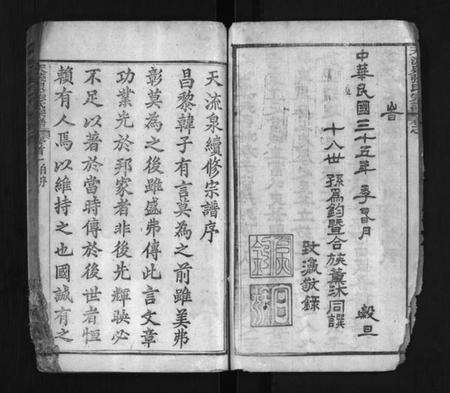 峕
中華民國三十五年季春月 穀旦
十八世 孫為鈞暨合族薰沐同譔
敬錄
天流泉續修宗譜序
昌黎韓子有言莫為之前雖美弗
彰莫為之後雖盛弗傳此言文章
功業光於邦家者非後先輝映必
不足以著於當時傳於後世者恒
賴有人焉以維持之也國誠有之